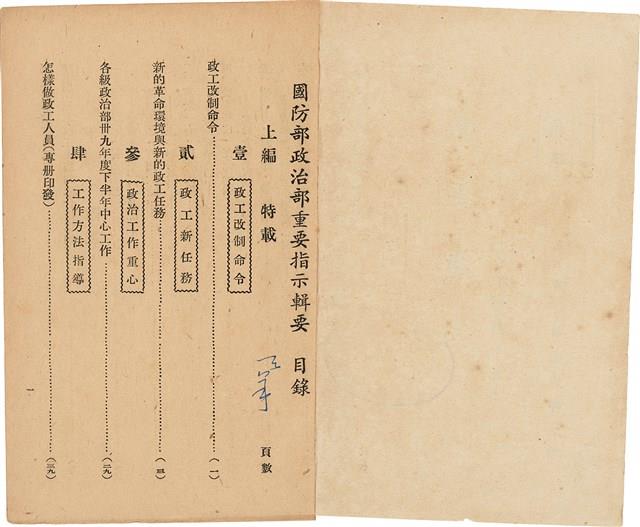 國防部政治部重要指示輯要 目錄
上編 特載 頁數
壹 政工改制命令
政工改制命令……(一)
貳 政工新任務
新的革命環境與新的政工任務……(三)
參 政治工作重心
各級政治部卅九年度下半年中心工作……(二九)
肆 工作方法指導
怎樣做政工人員(專册印發)……(三九)
一